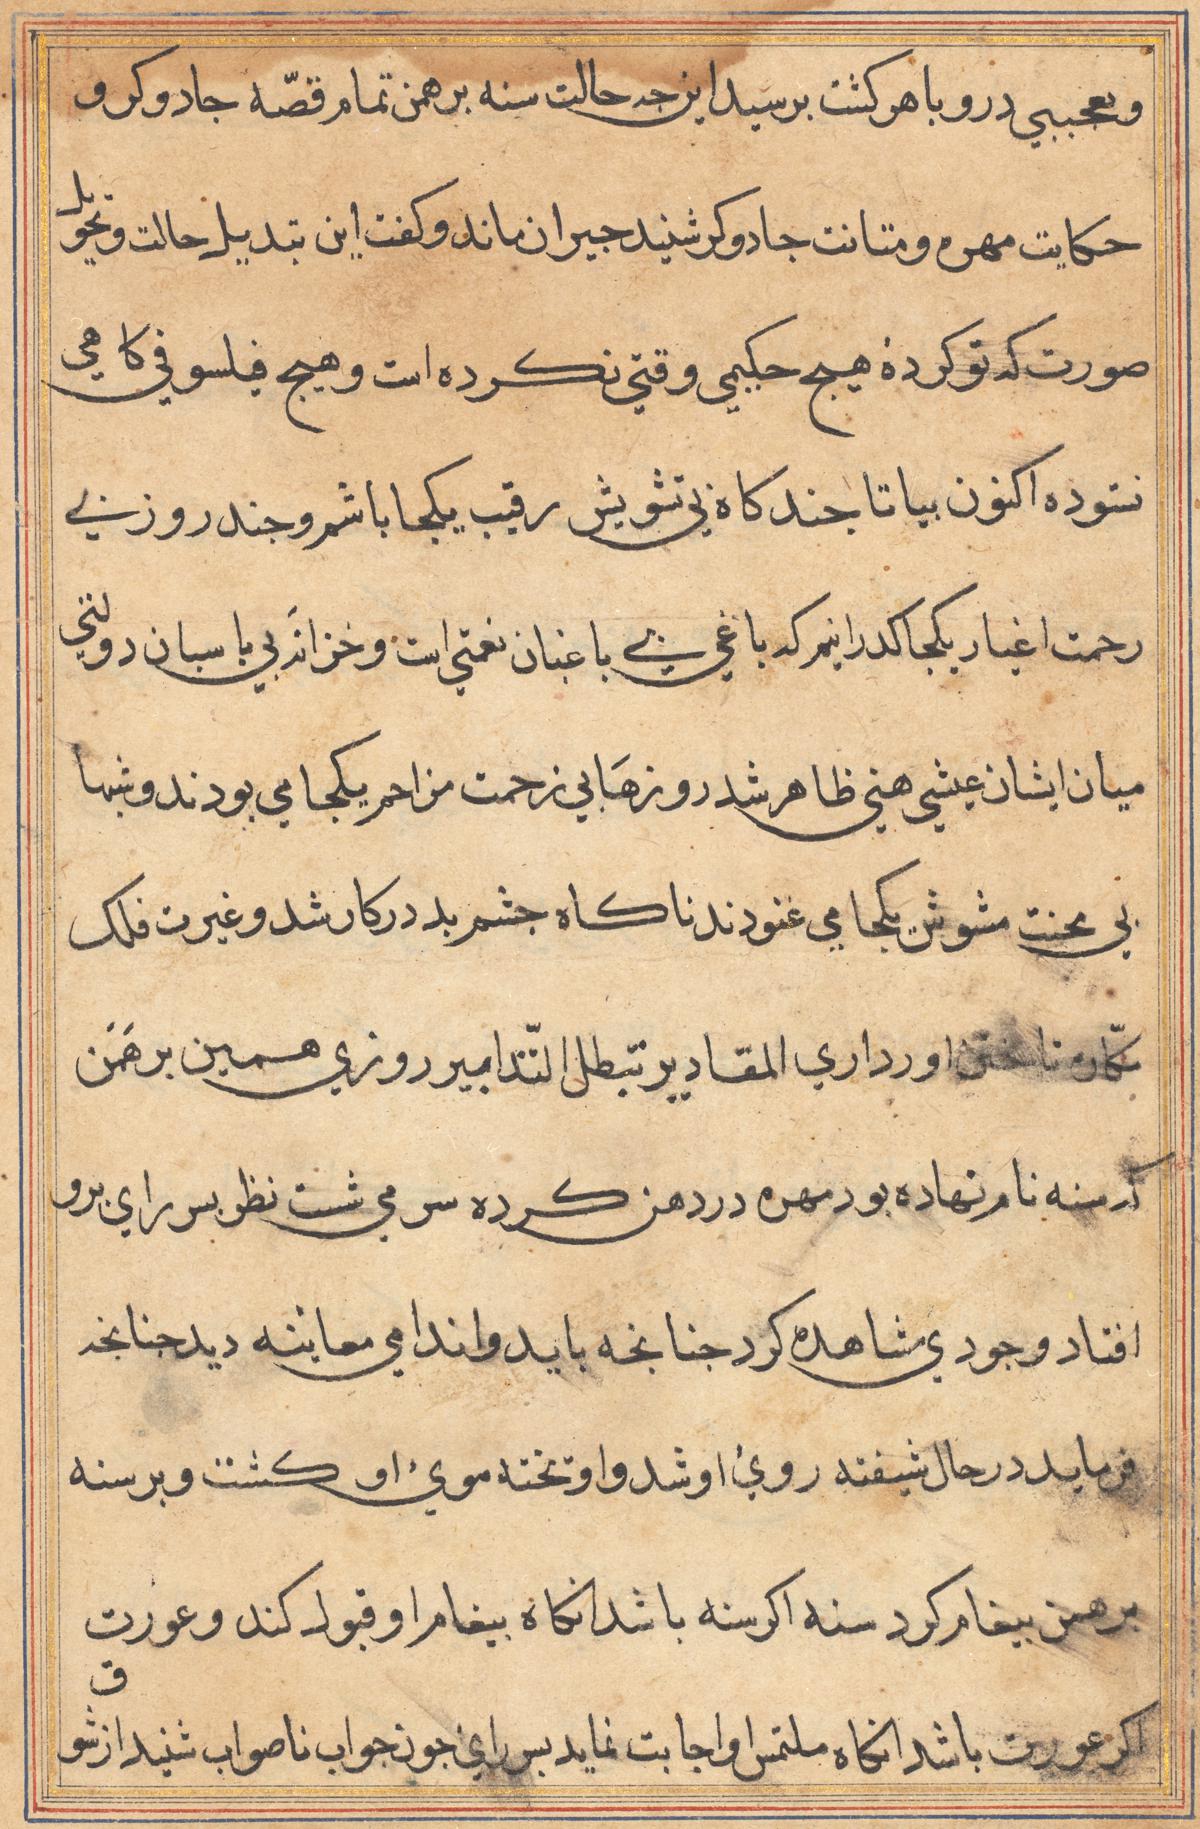 و تعجبی درو باهر کشت برسید این جه حالت سنه برهمن تمام قصّه جادوکر و
حکایت مهره و متانت جادوکر شنید حیران ماند و کفت این تبدیل حالت و تحویل
صورت که تو کردهٔ هیج حکیمی وقتی نکرده است و هیج فیلسوفی کاهی
نستوده اکنون بیا تا جند کاه بی تشویش رقیب یکجا باشم و جند روز بی
زحمت اغیار یکجا کدرانیم که باغی بی باغبان نعمتی است و خزانه بی باسبان دولتی
میان ایشان عیشی هنی ظاهر شد روزها بی زحمت مزاحم یکجا می بودند و شبها
بی محنت مشوش یکجا می غنودند ناکاه جشم بد در کار شد و غیرت فلک
اورد اری المقادیر تبطل التدابیر روزی همین برهمن
که سنه نام نهاده بود مهره در دهن کرده سر می شست نظر بسر رای برو
افتاد وجودی مشاهده کرد جنانجه باید و اندامی معاینه دید جنانجه
فرماید در حال شیفته روی او شد و اوتخته موی او کشت و بر سنه
برهمن بیغام کرد سنه اکر سنه باشد انکاه بیغام او قبول کند و عورت
اکر عورت باشد انکاه ملتمس او اجابت نماید بسر رای جون جواب ناصواب شنید از شوق